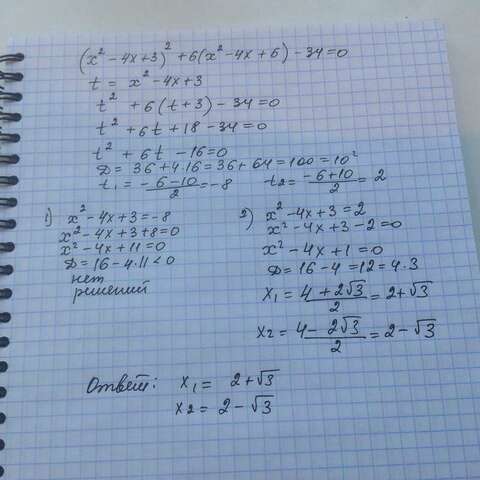 (x² - 4x + 3)² + 6(x² - 4x + 6) - 34 = 0
t = x² - 4x + 3
t² + 6(t + 3) - 34 = 0
t² + 6t + 18 - 34 = 0
t² + 6t - 16 = 0
D = 36 + 4·16 = 36 + 64 = 100 = 10²
t₁ = (-6 - 10)/2 = -8 t₂ = (-6 + 10)/2 = 2
1) x² - 4x + 3 = -8
x² - 4x + 3 + 8 = 0
x² - 4x + 11 = 0
D = 16 - 4·11 < 0
нет
решений
2) x² - 4x + 3 = 2
x² - 4x + 3 - 2 = 0
x² - 4x + 1 = 0
D = 16 - 4 = 12 = 4·3
x₁ = (4 + 2√3)/2 = 2 + √3
x₂ = (4 - 2√3)/2 = 2 - √3
Ответ: x₁ = 2 + √3
x₂ = 2 - √3